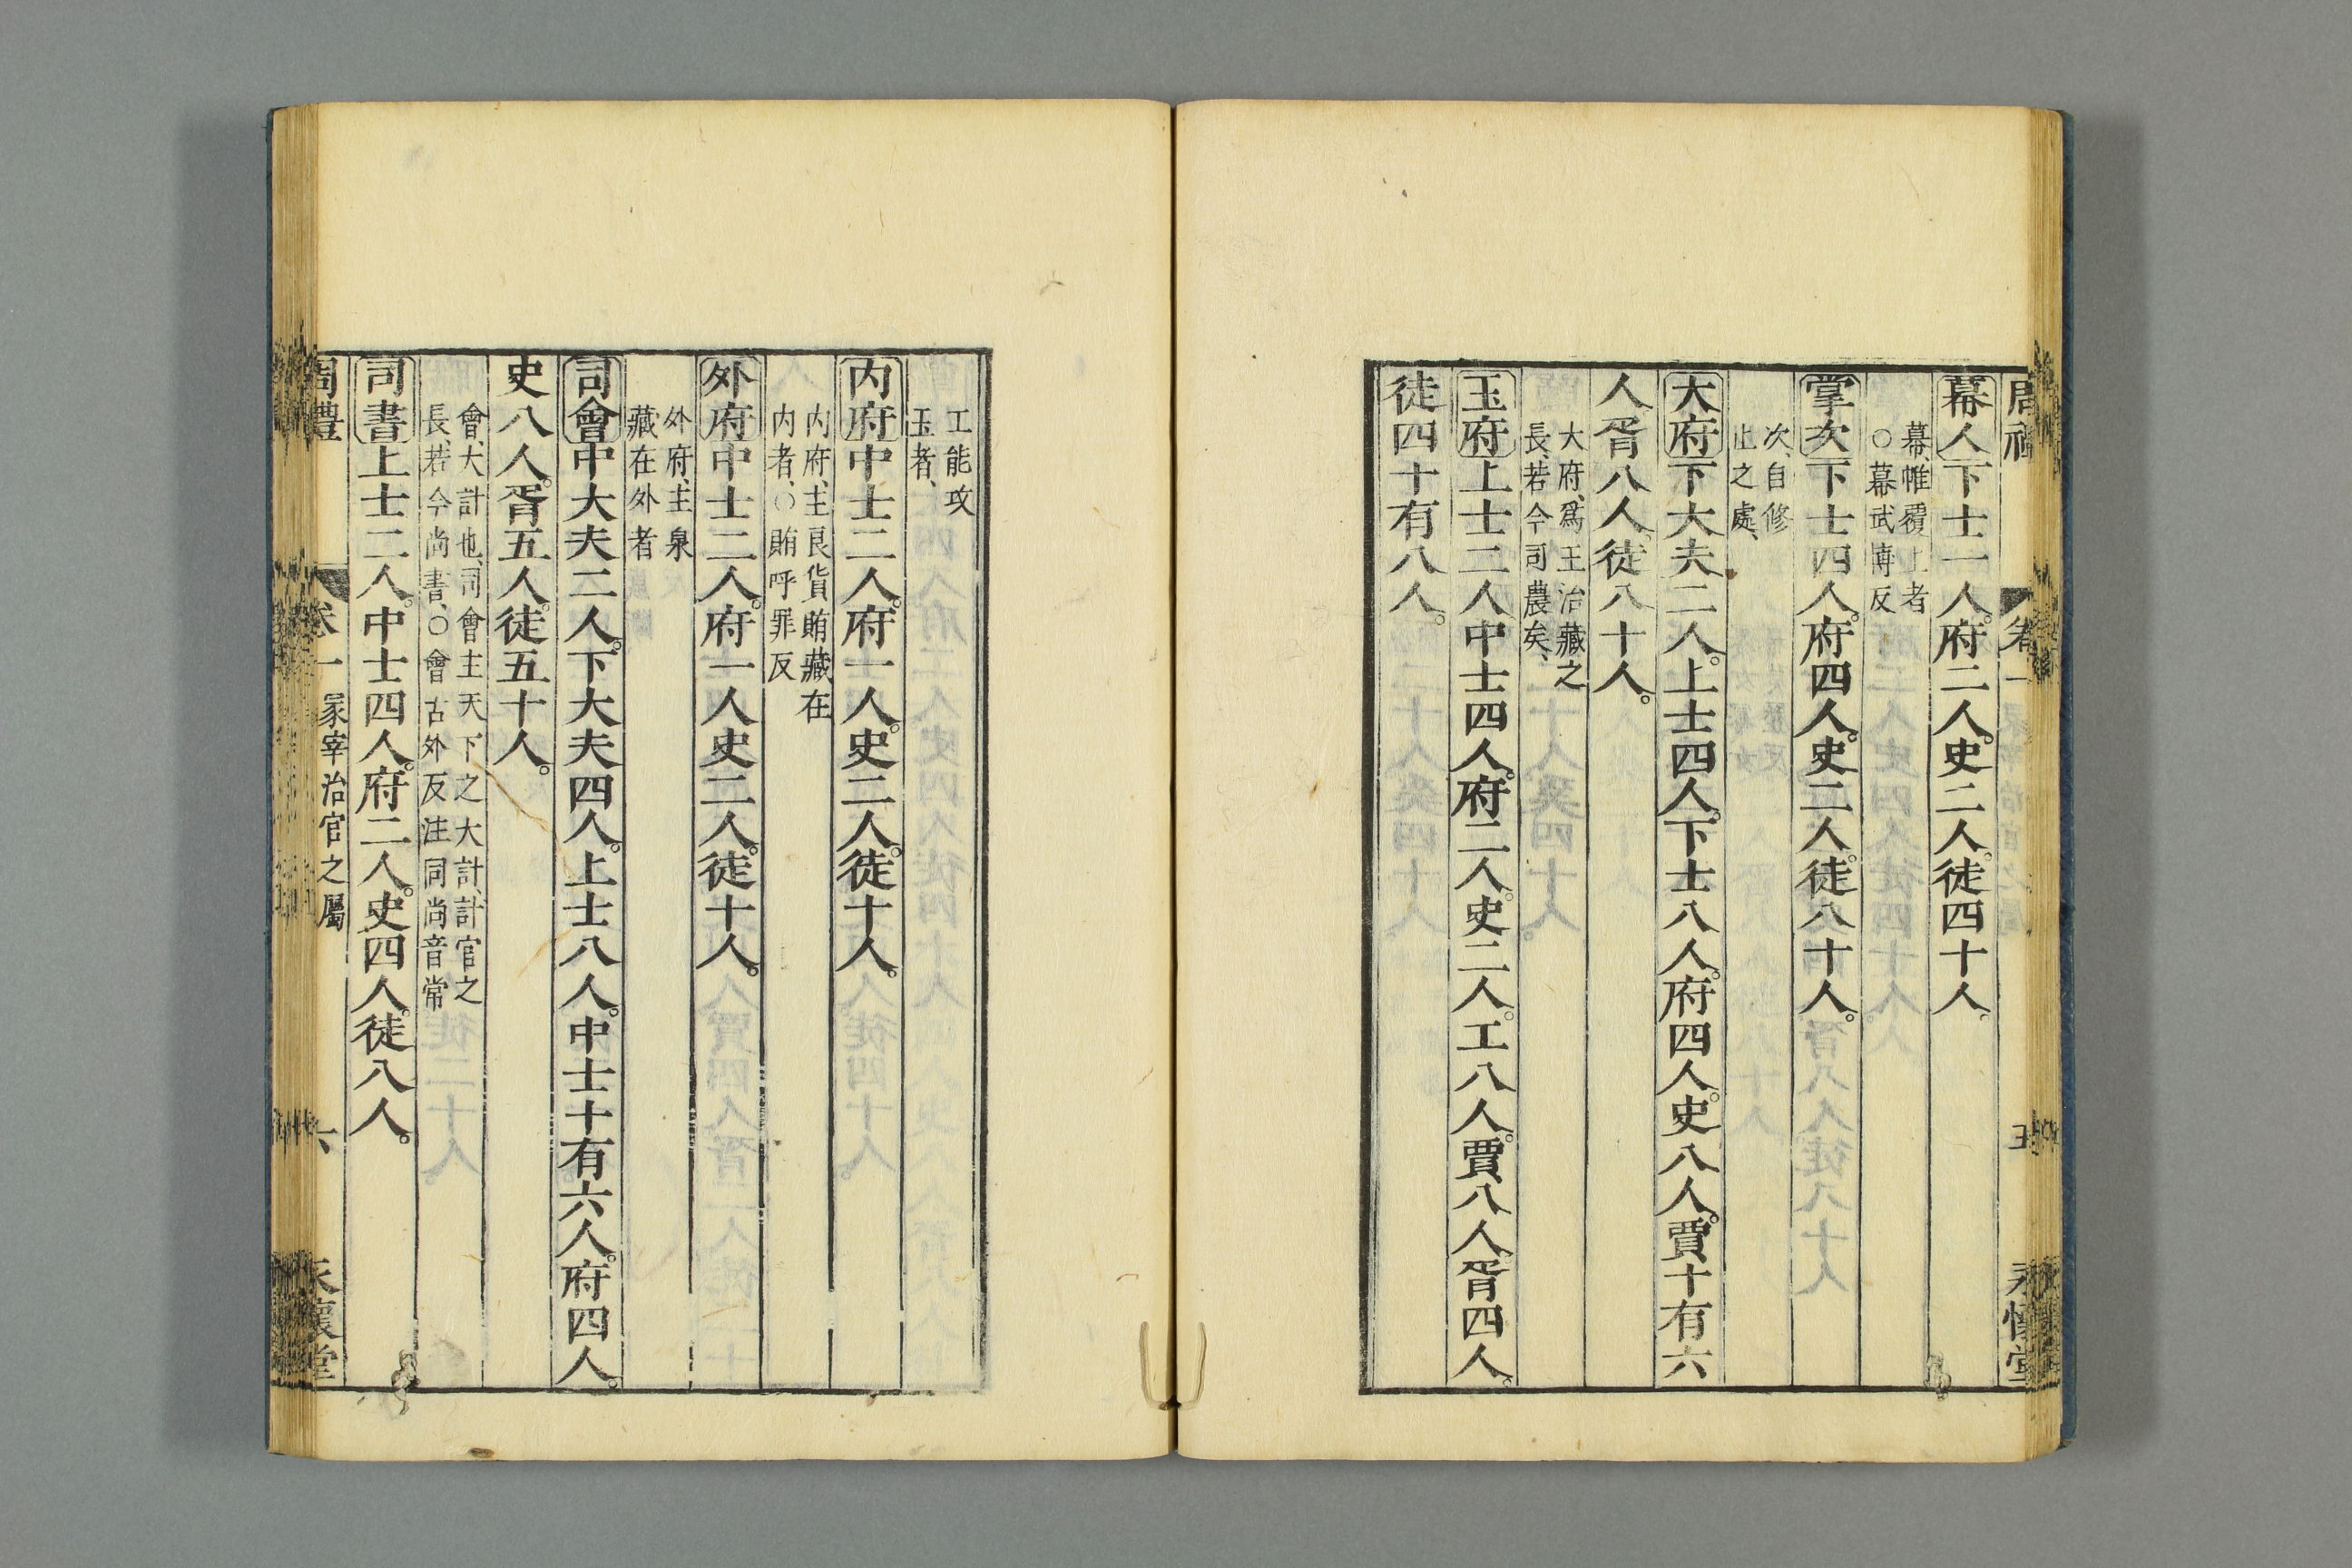 幕人下士一人。府二人。史二人。徒四十人。
幕、帷覆上者
○幕武博反
掌次下士四人。府四人。史二人。徒八十人。
次、自修
止之處、
大府下大夫二人。上士四人。下士八人。府四人。史八人。賈十有六
人胥八人。徒八十人。
大府、爲王治藏之
長、若今司農矣、
玉府上士二人中士四人。府二人。史二人。工八人。賈八人。胥四人。
徒四十有八人。
工能攻
玉者、
内府中士二人。府一人。史二人。徒十人。
内府、主良貨賄藏在
内者、○賄呼罪反
外府中士二人。府一人史二人。徒十人。
外府、主泉
藏在外者
司會中大夫二人。下大夫四人。上士八人。中士十有六人。府四人。
史八人。胥五人。徒五十人。
會、大計也、司會主天下之大計、計官之
長、若今尚書、○會古外反注同尚音常
司書上士二人。中士四人。府二人。史四人。徒八人。
周禮 卷一 冢宰治官之屬 六 永懷堂